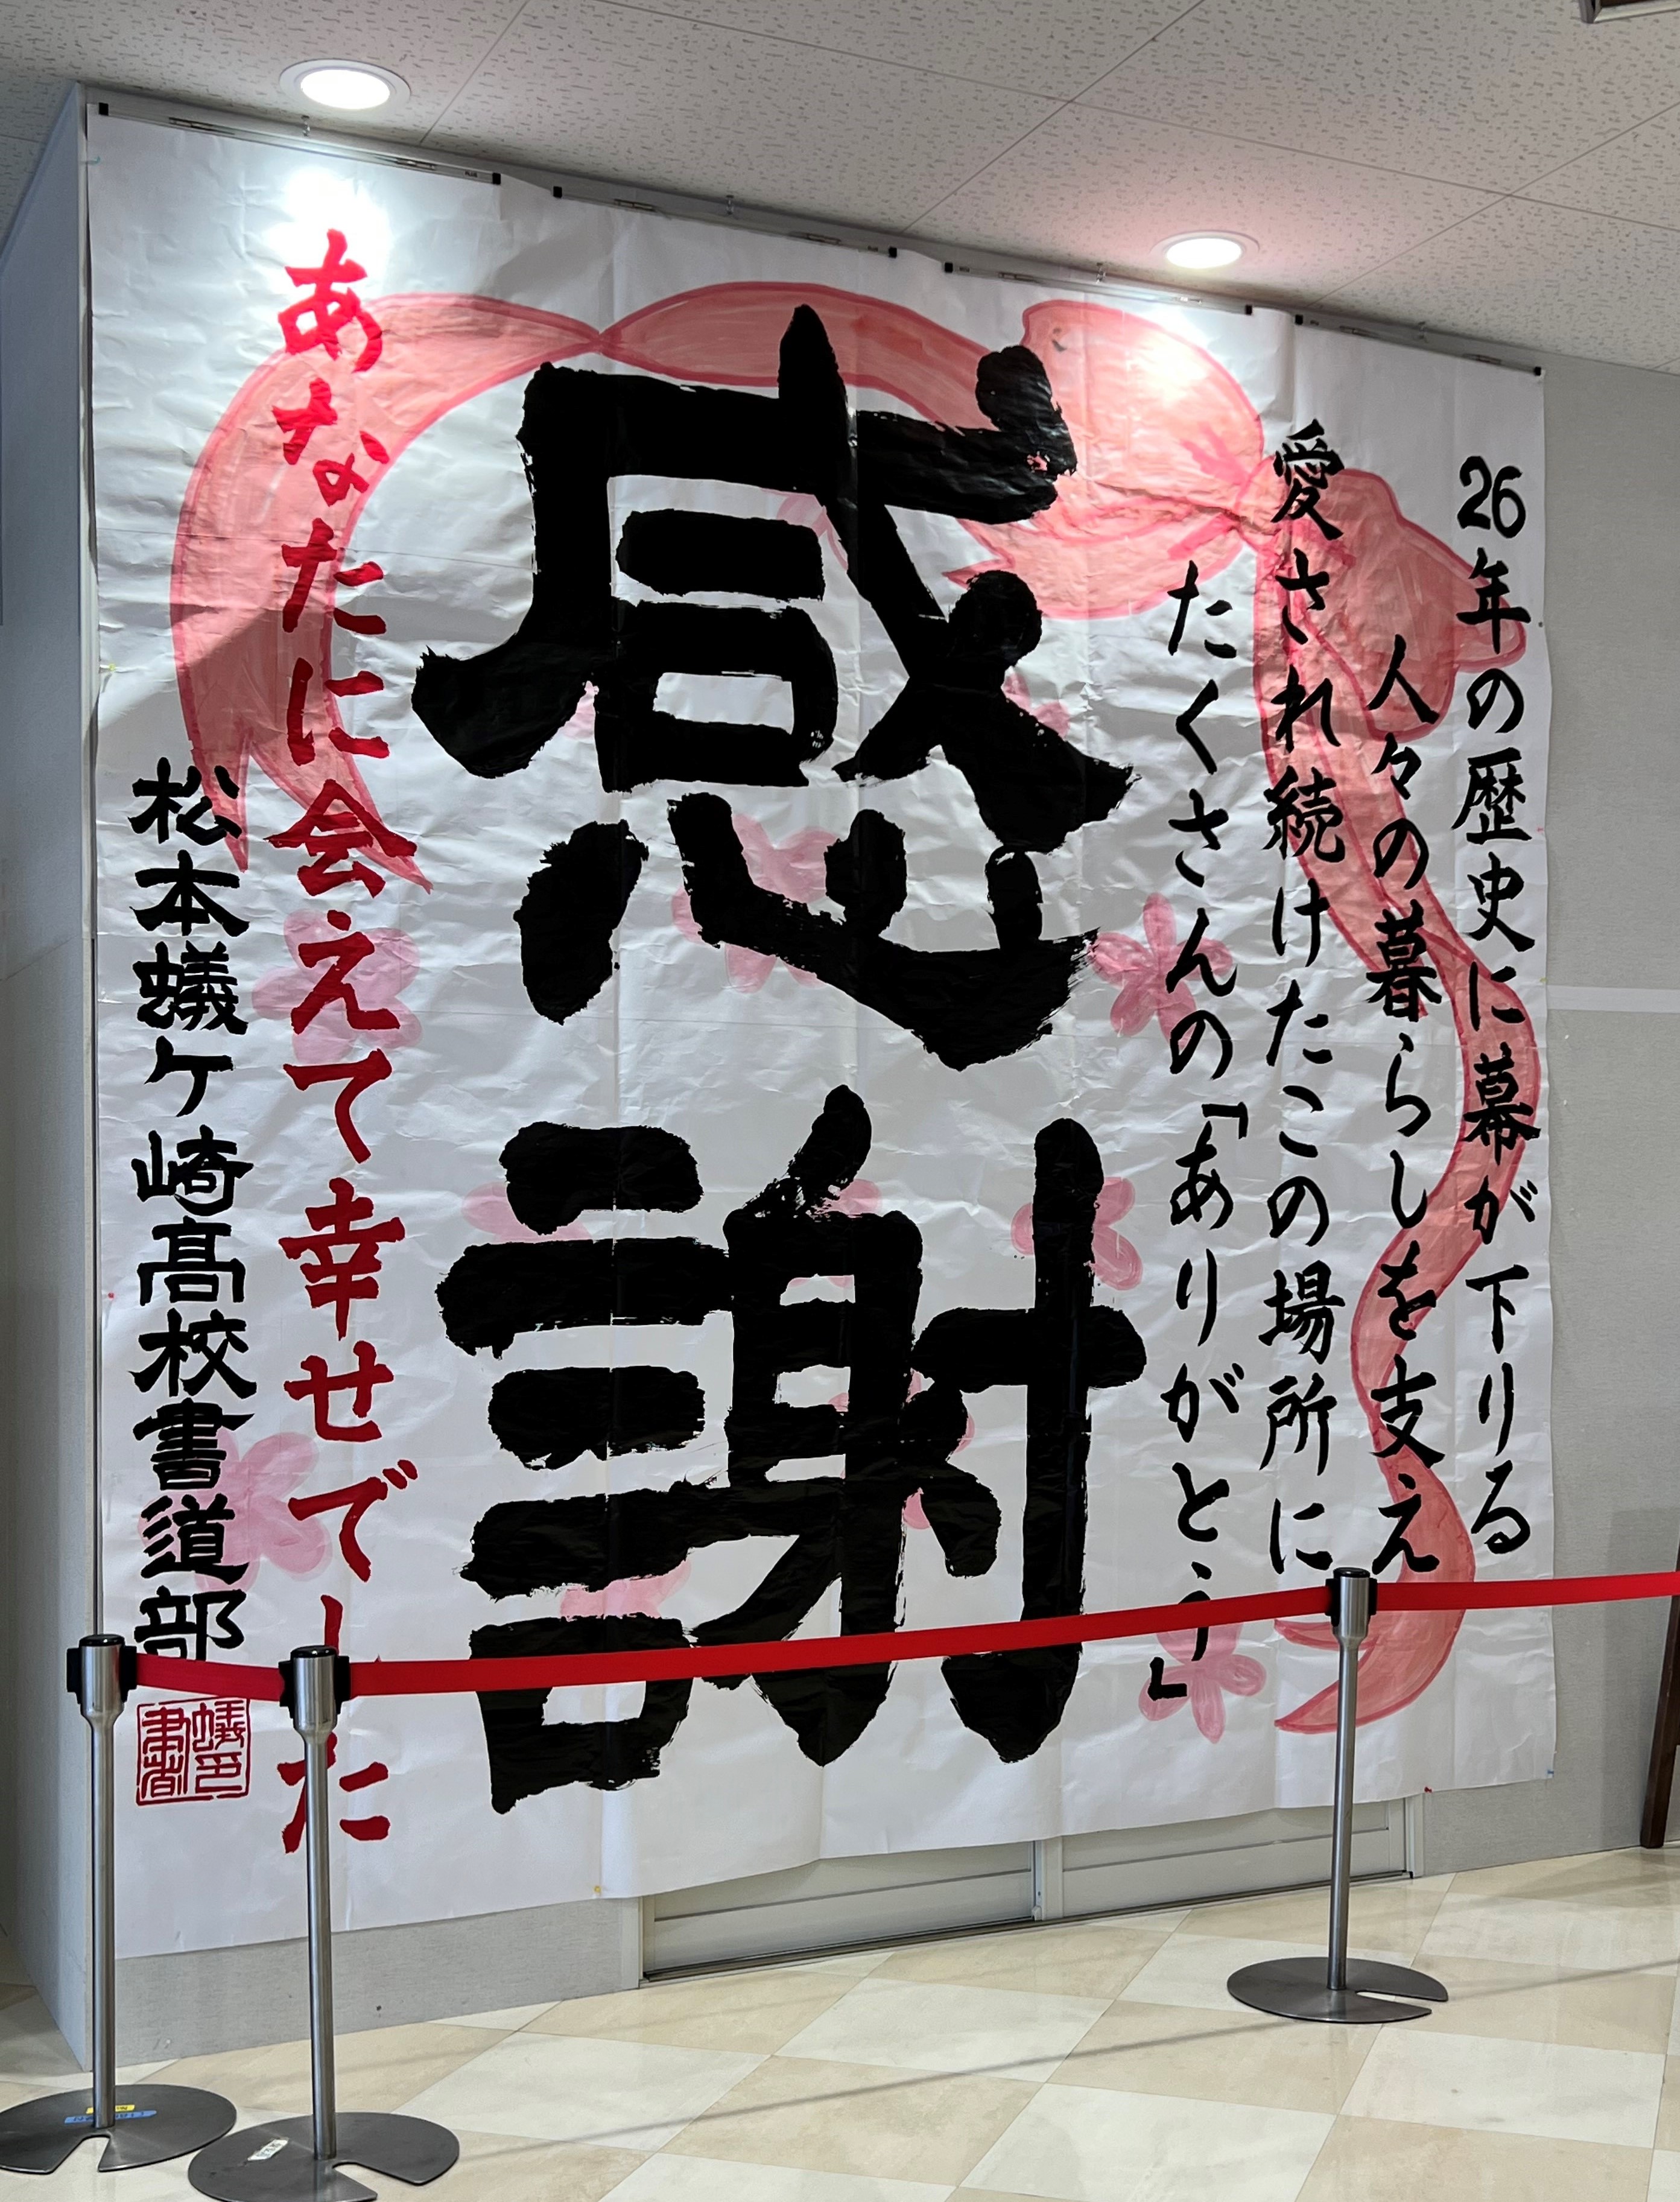 26年の歴史に幕が下りる
人々の暮らしを支え
愛され続けたこの場所に
たくさんの「ありがとう」
感謝
あなたに会えて幸せでした
松本蟻ケ崎高校書道部